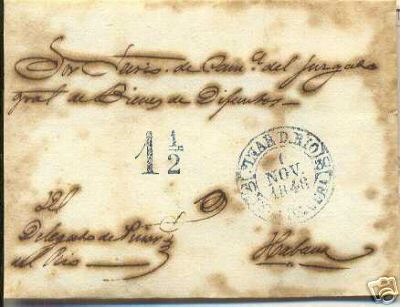 Sor Secrio. de Cam.a del Juzgado
gral de Bienes de Difuntos
1 1/2
PINAR D. RIO
1
NOV.
1846
Del
Delegado de Pinar
del Rio
Habana